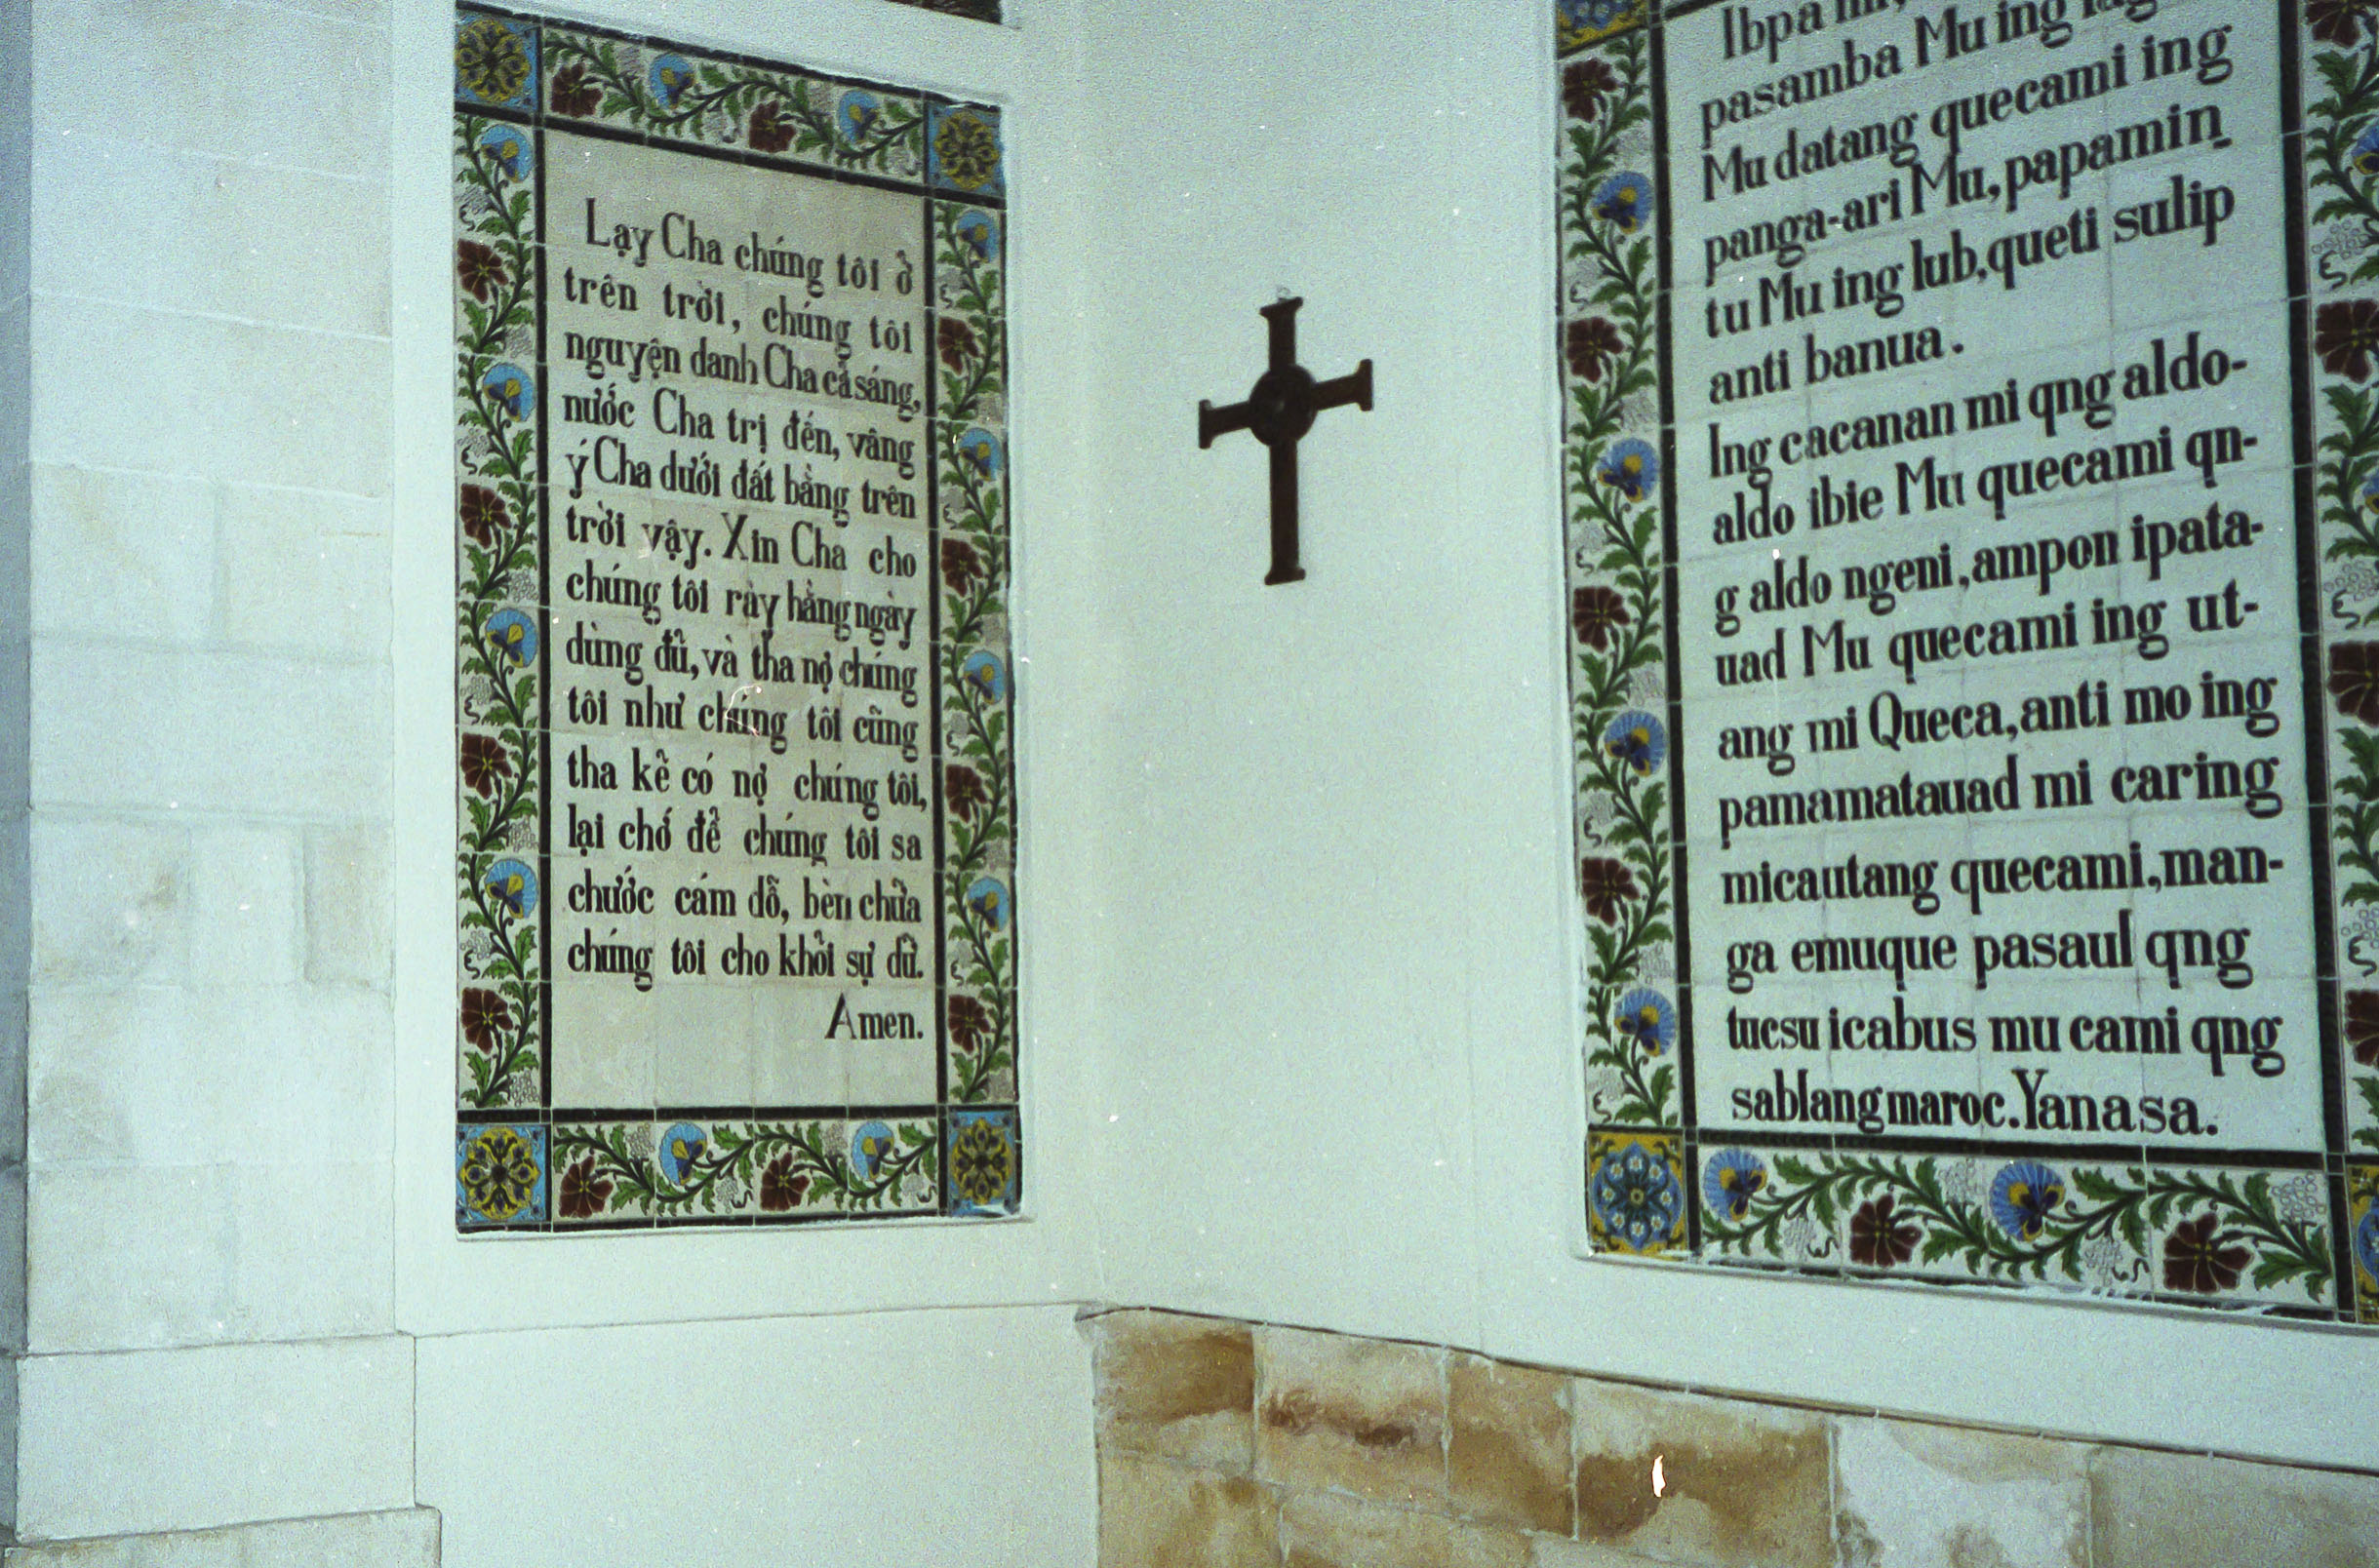 Lạy Cha chúng tôi ở
trên trời, chúng tôi
nguyện danh Cha cả sáng,
nước Cha trị đến, vâng
ý Cha dưới đất bằng trên
trời vậy. Xin Cha cho
chúng tôi rày hằng ngày
dùng đủ, và tha nợ chúng
tôi như chúng tôi cũng
tha kẻ có nợ chúng tôi,
lại chớ để chúng tôi sa
chước cám dỗ, bèn chữa
chúng tôi cho khỏi sự dữ.
Amen.
Ibpa mi,
pasamba Mu ing
Mu datang quecami ing
panga-ari Mu, papamin
tu Mu ing lub, queti sulip
anti banua.
Ing cacanan mi qng aldo-
aldo ibie Mu quecami qn-
g aldo ngeni, ampon ipata-
uad Mu quecami ing ut-
ang mi Queca, anti mo ing
pamamatauad mi caring
micautang quecami, man-
ga emuque pasaul qng
tucsu icabus mu cami qng
sablang maroc. Yanasa.